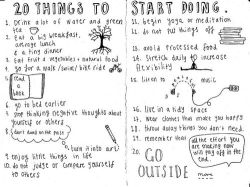 20 THINGS TO START DOING.
1. Drink alot of water and green
tea
2. Eat a big breakfast,
average lunch
& a tiny dinner
3. Eat fruit / vegetables + natural food
4. go for a walk / swim / bike ride
5. READ
A
BOOK
6. go to bed earlier
7. stop thinking negative thoughts about
yourself or others
8. don't dwell on the past
turn it into art
9. enjoy little things in life
10. do not judge or compare yourself
to others
11. begin yoga or meditation
12. do not put things off
13. avoid processed food
14. Stretch daily to increase
flexibility
15. Listen to music
16. live in a tidy space
17. wear clothes that make you happy
18. throw away things you don't need
19. remember that
all the effort you
are making now
will pay off in the
end
20. GO
OUTSIDE
more